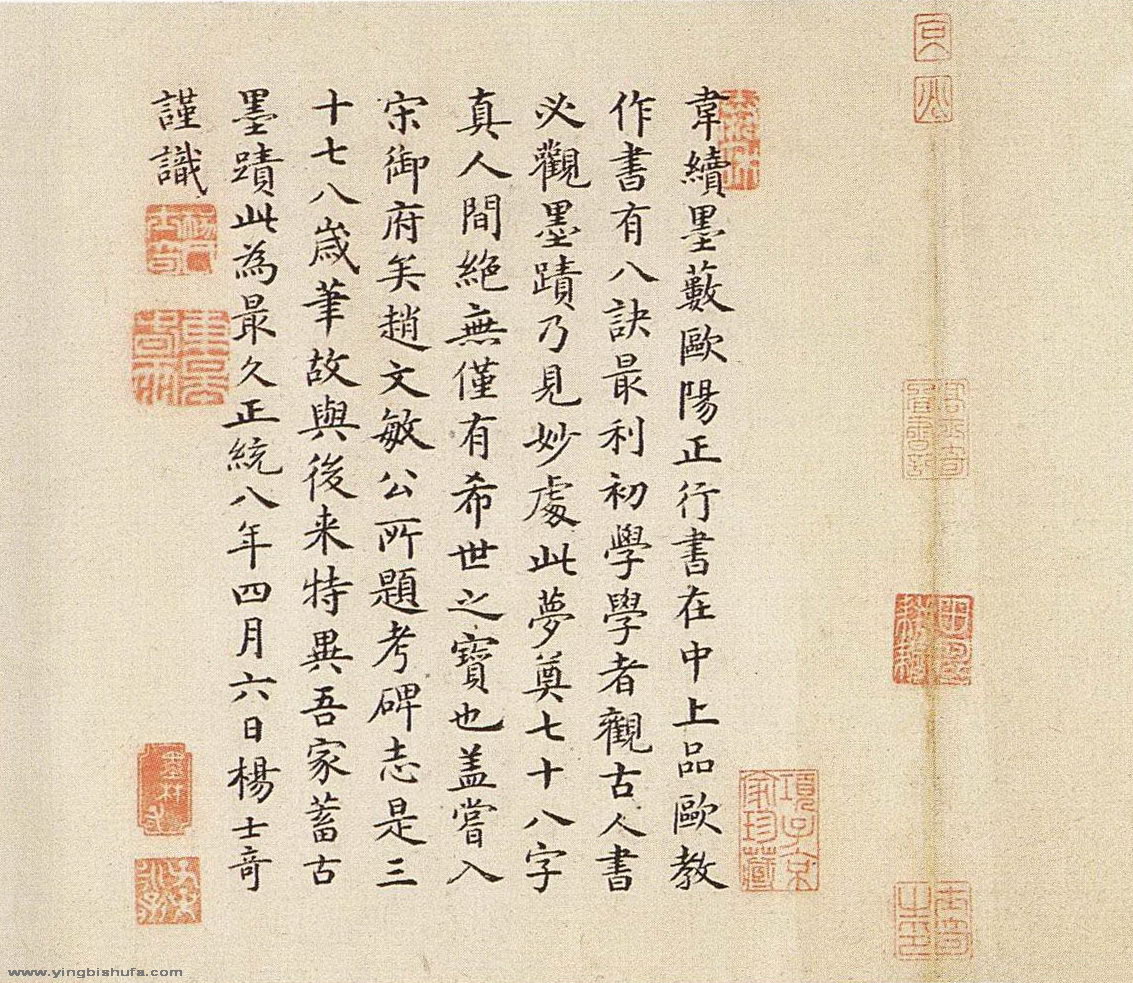 韋續墨藪歐陽正行書在中上品歐教
作書有八訣最利初學學者觀古人書
必觀墨蹟乃見妙處此夢奠七十八字
真人間絕無僅有希世之寶也盖嘗入
宋御府矣趙文敏公所題考碑志是三
十七八歲筆故與後来特異吾家蓄古
墨蹟此為最久正統八年四月六日楊士奇
謹識
項子京家珍藏
www.yingbishufa.com